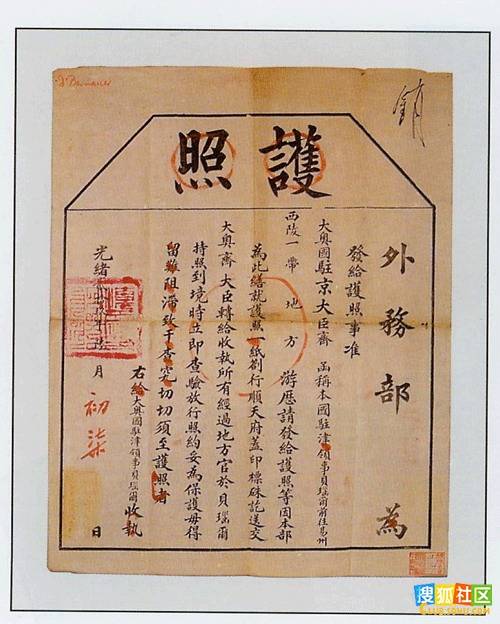 護照
銷
外務部 為
發給護照事准
大奧國駐京大臣齊 函稱本國駐津領事貝瑙爾前往易州
西陵一帶地方 游歷請發給護照等因本部
為此繕就護照一紙劄行順天府蓋印標硃訖送交
大奧齊大臣轉給收執所有經過地方官於貝瑙爾
持照到境時立即查驗放行照約妥為保護毋得
留難阻滯致干查究切切須至護照者
右給大奧國駐津領事貝瑙爾收執
光緒 月初柒日
搜狐社区
CLUB.SOHU.COM